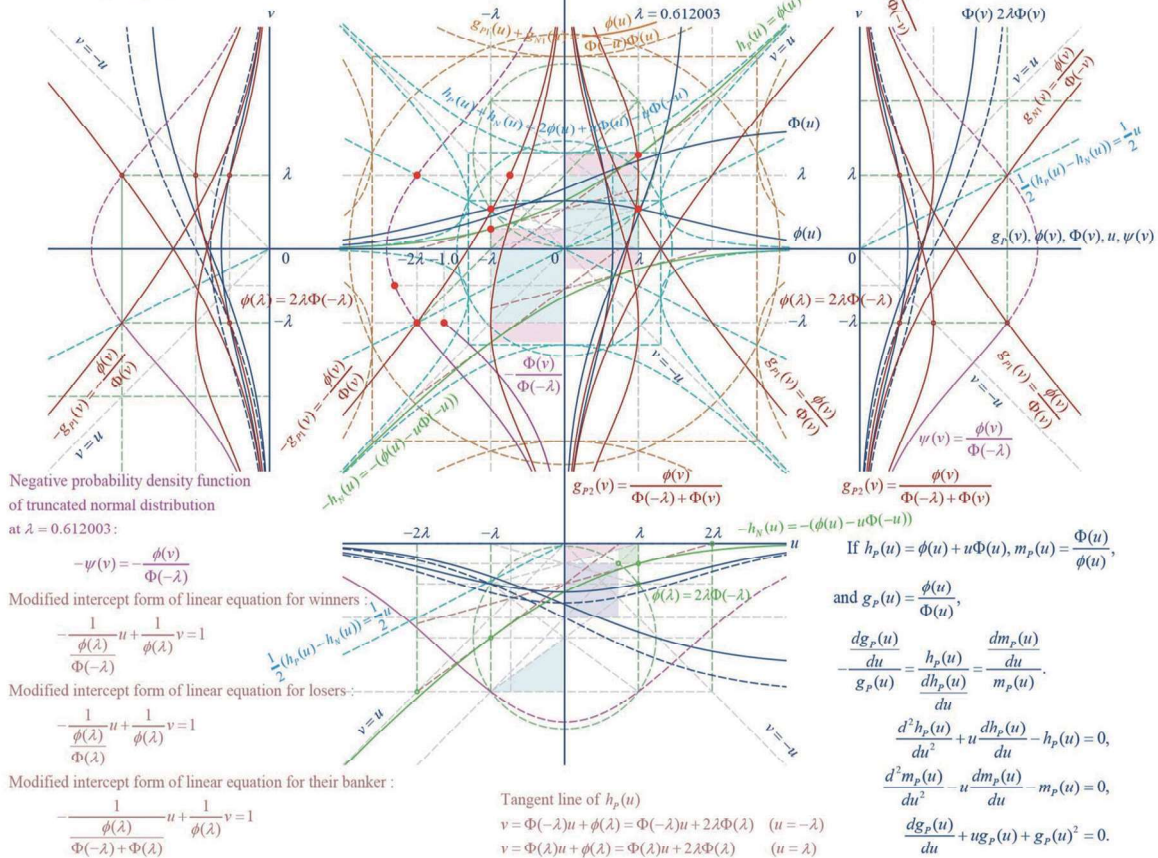 v
-λ
λ = 0.612003
v
Φ(v) 2λΦ(v)
v = -u
g_{P1}(u) + g_{N1}(u) = \frac{ϕ(u)}{Φ(-u)Φ(u)}
h_P(u) = ϕ(u)
v = u
v = u
g_{N1}(v) = \frac{ϕ(v)}{Φ(-v)}
h_P(u) + h_N(u) = 2ϕ(u) + uΦ(u) - uΦ(-u)
Φ(u)
\frac{1}{2}(h_P(u) - h_N(u)) = \frac{1}{2}u
λ
λ
λ
ϕ(u)
g_P(v), ϕ(v), Φ(v), u, ψ(v)
0
-2λ -1.0 -λ 0 λ
0
ϕ(λ) = 2λΦ(-λ)
ϕ(λ) = 2λΦ(-λ)
-λ
-λ
-λ
-g_{P1}(v) = -\frac{ϕ(v)}{Φ(v)}
v = u
-g_{P1}(v) = -\frac{ϕ(v)}{Φ(v)}
-\frac{Φ(v)}{Φ(-λ)}
v = -u
g_{P1}(v) = \frac{ϕ(v)}{Φ(v)}
v = -u
g_{P1}(v) = \frac{ϕ(v)}{Φ(v)}
ψ(v) = \frac{ϕ(v)}{Φ(-λ)}
-h_N(u) = -(ϕ(u) - uΦ(-u))
g_{P2}(v) = \frac{ϕ(v)}{Φ(-λ) + Φ(v)}
g_{P2}(v) = \frac{ϕ(v)}{Φ(-λ) + Φ(v)}
Negative probability density function
of truncated normal distribution
at λ = 0.612003 :
-ψ(v) = -\frac{ϕ(v)}{Φ(-λ)}
Modified intercept form of linear equation for winners :
-\frac{1}{\frac{ϕ(λ)}{Φ(-λ)}}u + \frac{1}{ϕ(λ)}v = 1
Modified intercept form of linear equation for losers :
-\frac{1}{\frac{ϕ(λ)}{Φ(λ)}}u + \frac{1}{ϕ(λ)}v = 1
Modified intercept form of linear equation for their banker :
-\frac{1}{\frac{ϕ(λ)}{Φ(-λ) + Φ(λ)}}u + \frac{1}{ϕ(λ)}v = 1
-2λ -λ λ 2λ
-h_N(u) = -(ϕ(u) - uΦ(-u))
u
ϕ(λ) = 2λΦ(-λ)
\frac{1}{2}(h_P(u) - h_N(u)) = \frac{1}{2}u
v = u
v = -u
Tangent line of h_P(u)
v = Φ(-λ)u + ϕ(λ) = Φ(-λ)u + 2λΦ(λ) (u = -λ)
v = Φ(λ)u + ϕ(λ) = Φ(λ)u + 2λΦ(λ) (u = λ)
If h_P(u) = ϕ(u) + uΦ(u), m_P(u) = \frac{Φ(u)}{ϕ(u)},
and g_P(u) = \frac{ϕ(u)}{Φ(u)},
-\frac{\frac{dg_P(u)}{du}}{g_P(u)} = \frac{h_P(u)}{\frac{dh_P(u)}{du}} = \frac{\frac{dm_P(u)}{du}}{m_P(u)}.
\frac{d^2h_P(u)}{du^2} + u\frac{dh_P(u)}{du} - h_P(u) = 0,
\frac{d^2m_P(u)}{du^2} - u\frac{dm_P(u)}{du} - m_P(u) = 0,
\frac{dg_P(u)}{du} + ug_P(u) + g_P(u)^2 = 0.